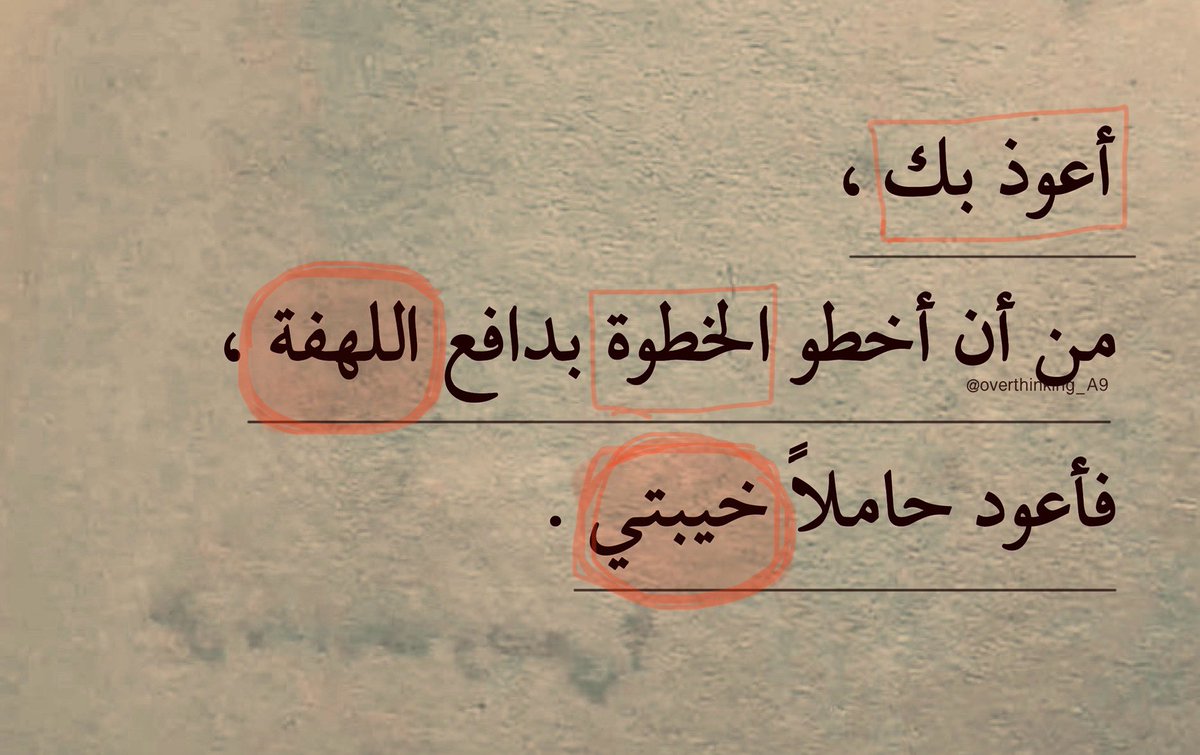 أعوذ بك ،
من أن أخطو الخطوة بدافع اللهفة ،
@overthinking_A9
فأعود حاملاً خيبتي .